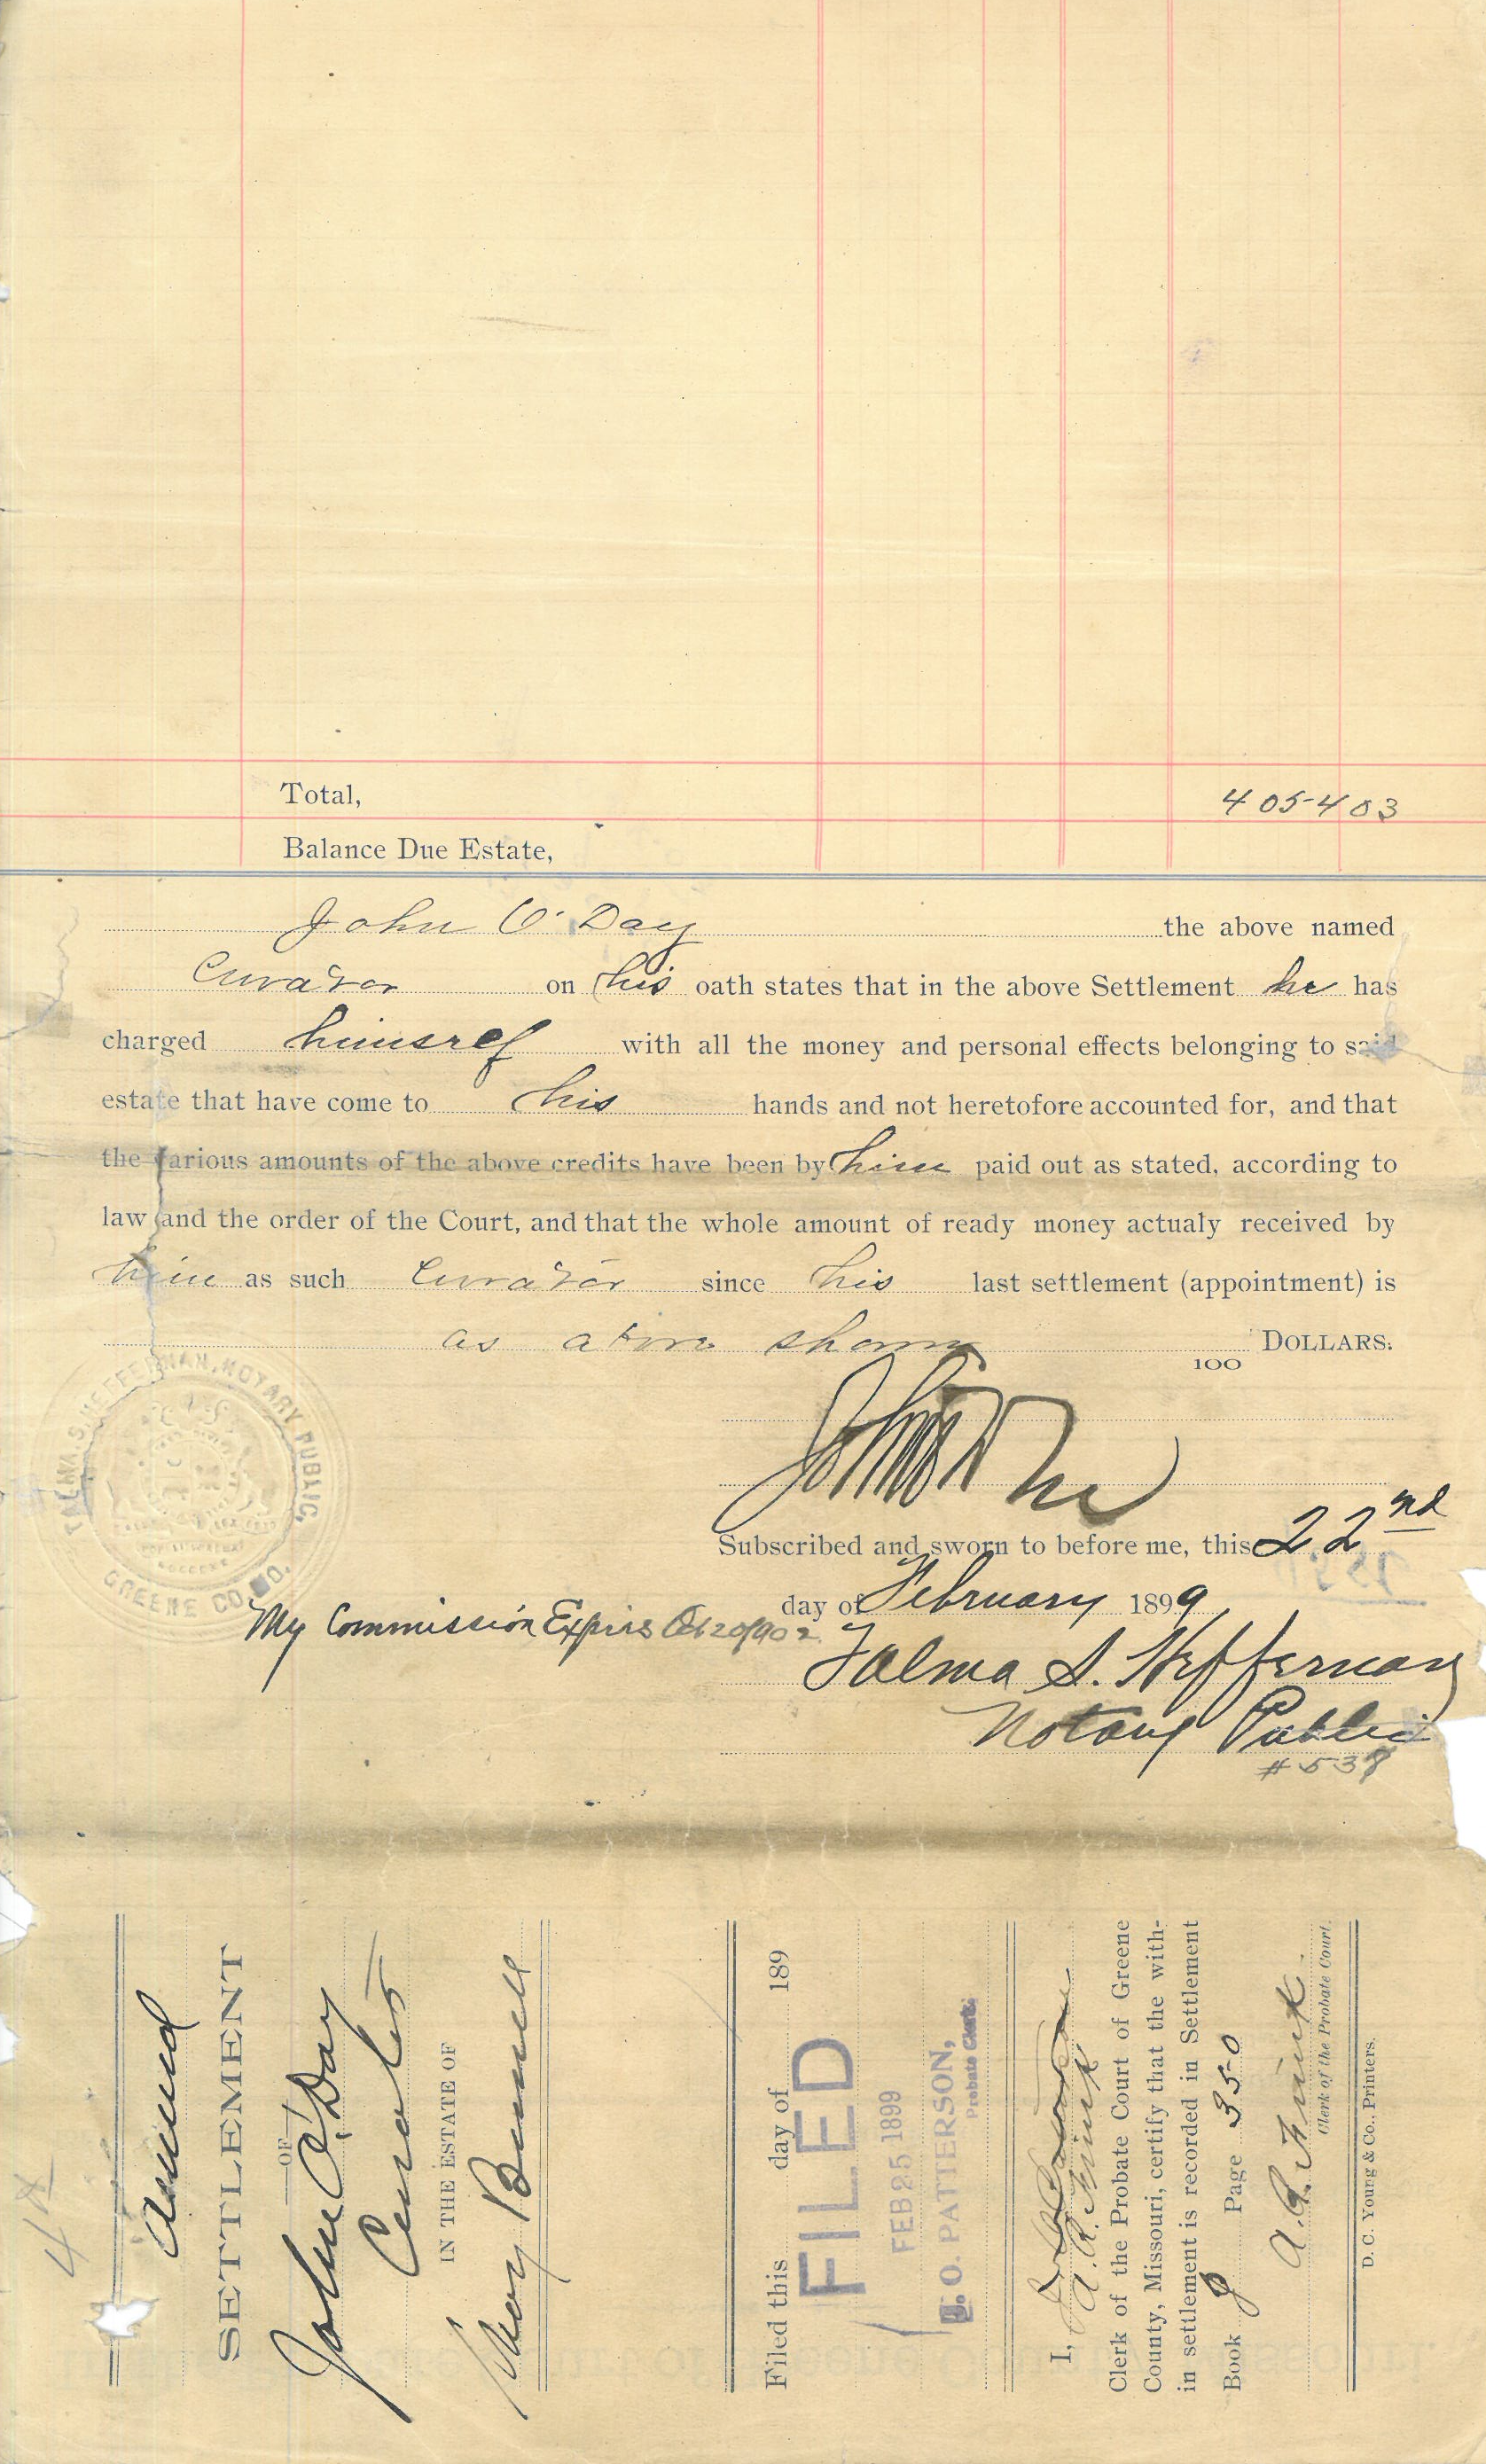 Total, 405403
Balance Due Estate,
John O'Day the above named
Curator on his oath states that in the above Settlement he has
charged himself with all the money and personal effects belonging to said
estate that have come to his hands and not heretofore accounted for, and that
the various amounts of the above credits have been by him paid out as stated, according to
law and the order of the Court, and that the whole amount of ready money actualy received by
him as such Curator since his last settlement (appointment) is
as above shown DOLLARS.
100
John O'Day
Subscribed and sworn to before me, this 22nd
day of February 1899
My Commission Expires Oct 20 1902
Talma S. Heffernan
Notary Public
#538
TALMA S. HEFFERNAN, NOTARY PUBLIC,
GREENE CO. MO.
44
Annual
SETTLEMENT
OF
John O'Day
Curator
IN THE ESTATE OF
Mary Burnell
Filed this day of 189
FILED
FEB 25 1899
O. PATTERSON,
Probate Clerk.
I,
A. R. Fink
Clerk of the Probate Court of Greene
County, Missouri, certify that the with-
in settlement is recorded in Settlement
Book J Page 350
A. R. Fink.
Clerk of the Probate Court.
D. C. Young & Co., Printers.